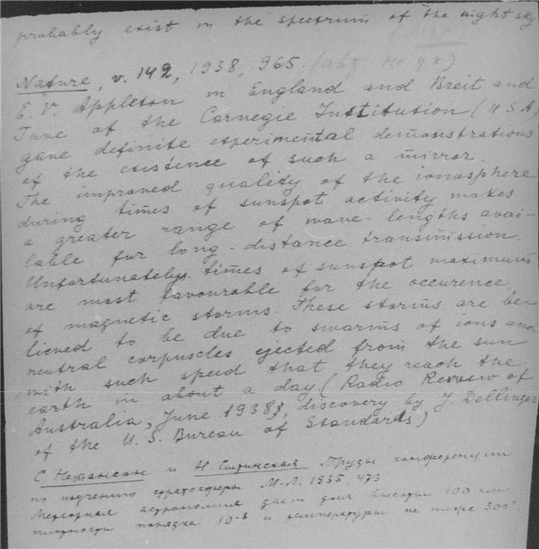 probably exist in the spectrum of the night sky
Nature, v. 142, 1938, 965.
E. V. Appleton in England and Breit and
Tuve of the Carnegie Institution (U.S.A.
gave definite experimental demonstrations
of the existence of such a mirror.
The improved quality of the ionosphere
during times of sunspot activity makes
a greater range of wave-lengths avai-
lable for long-distance transmission.
Unfortunately times of sunspot maximum
are most favourable for the occurence
of magnetic storms. These storms are be-
lieved to be due to swarms of ions and
neutral corpuscles ejected from the sun
with such speed that they reach the
earth in about a day. (Radio Review of
Australia, June 1938), discovery by J. Dellinger
of the U.S. Bureau of Standards)
С. Натансон и Н. Сытинская Труды конференции
по изучению стратосферы М.Л. 1935 473
Метеорная астрономия дает для высоты 100 км
плотности порядка 10⁻⁸ и температуры не ниже 300°.